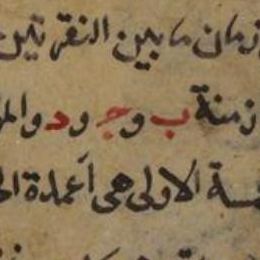 زمان ما بين النقرتين
زمنة ب و ج و د والم
سة الاولى هى اعمدة ال